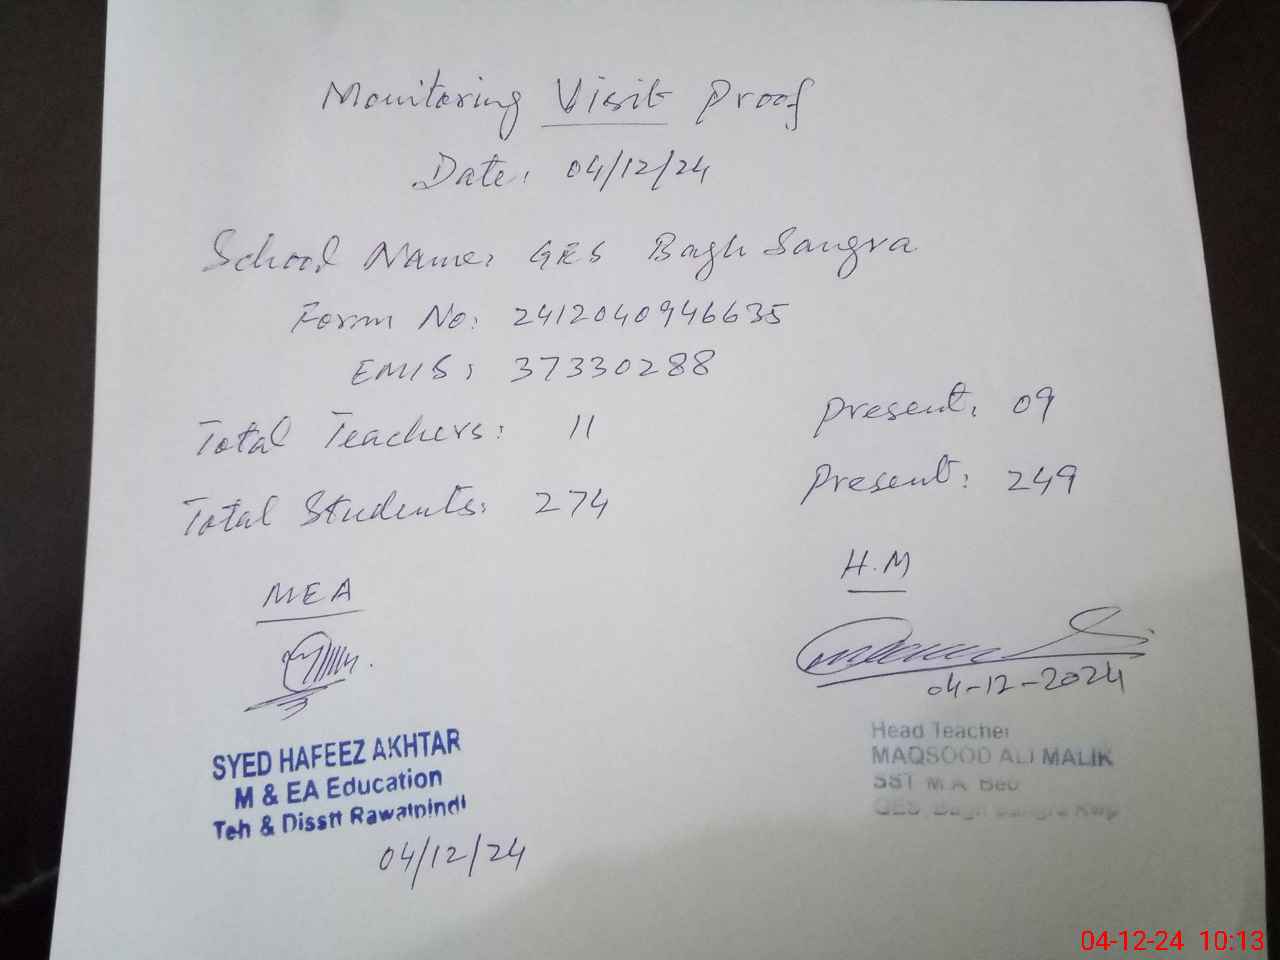 Monitoring Visit Proof
Date: 04/12/24
School Name: GES Bagh Sangra
Form No: 2412040946635
EMIS: 37330288
Total Teachers: 11 Present: 09
Total Students: 274 Present: 249
MEA H.M
04-12-2024
SYED HAFEEZ AKHTAR
M & EA Education
Teh & Disstt Rawalpindi
04/12/24
Head Teacher
MAQSOOD ALI MALIK
SST M.A Bed
GES, Bagh Sangra Rwp
04-12-24 10:13